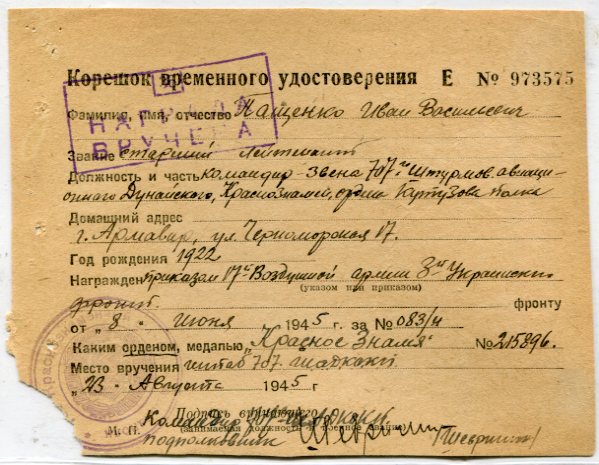 Корешок временного удостоверения Е № 973575
НАГРАДА
ВРУЧЕНА
Фамилия, имя, отчество Пащенко Иван Васильевич
Звание старший лейтенант
Должность и часть командир звена 707го Штурмов. авиаци-
онного Дунайского, Краснознамен, ордена Кутузова полка
Домашний адрес
г. Армавир, ул. Черноморская 17.
Год рождения 1922
Награжден приказом 17й Воздушной армии 3го Украинского
(указом или приказом)
фронт. фронту
от „8" июня 1945 г. за № 083/н
Каким орденом, медалью „Красное Знамя" № 215896.
Место вручения штаб 707.
„23" Августа 1945 г
Подпись вручившего
Командир 707
(занимаемая должность и военное звание)
М. П.
подполковник